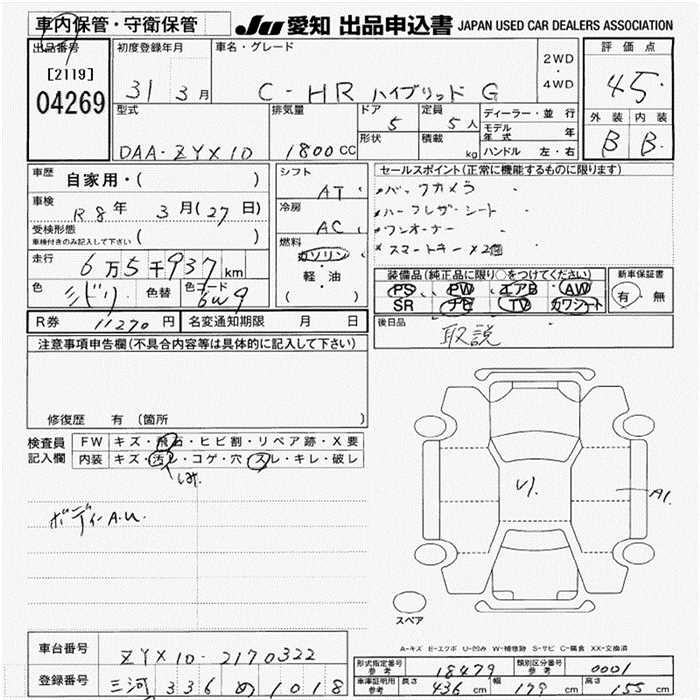 車内保管・守衛保管 JU 愛知 出品申込書 JAPAN USED CAR DEALERS ASSOCIATION
出品番号 初度登録年月 車名・グレード 評価点
[2119] 31 3月 C-HR ハイブリッド G 2WD・4WD 4.5
04269 型式 排気量 ドア 5 定員 5人 ディーラー・並行 外装 内装
DAA-ZYX10 1800CC 形状 積載 kg モデル年式 年 B B
ハンドル 左・右
車歴 自家用・( ) シフト AT セールスポイント(正常に機能するものに限ります)
車検 R8年 3月(27日) 冷房 AC ・バックカメラ
受検形態 ( ) ・ハーフレザーシート
車検付きのみ記入して下さい ・ワンオーナー
走行 6万5千937km 燃料 ガソリン ・スマートキー×2個
色 色替 色コード 6W9 軽・油 ( ) 装備品(純正品に限り○をつけてください) 新車保証書
PS PW エアB AW 有・無
SR ナビ TV カワシート
R券 11270円 名変通知期限 月 日 後日品 取説
注意事項申告欄(不具合内容等は具体的に記入して下さい)
修復歴 有 (箇所 )
検査員 FW キズ・飛石・ヒビ割・リペア跡・X要
記入欄 内装 キズ・汚レ・コゲ・穴・スレ・キレ・破レ
しみ
ボディA.U.
A1
スペア
A-キズ E-エクボ U-凹み W-補修跡 S-サビ C-腐食 XX-交換済
車台番号 ZYX10-2170322
登録番号 三河 336 め 1018
形式指定番号 参考 18479 類別区分番号 参考 0001
車庫証明用 参考 長さ 436cm 幅 179cm 高さ 155cm